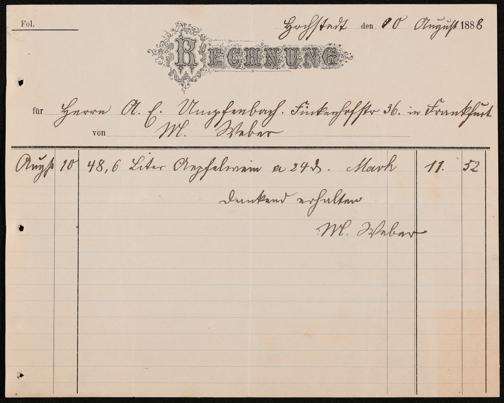 Fol.
Hochstadt den 10 August 1888
RECHNUNG
für Herrn A. E. Umpfenbach. Finkenhofstr 36. in Frankfurt
von M. Weber
August 10 48,6 Liter Aepfelwein a 24 d. Mark 11. 52
Dankend erhalten
M. Weber